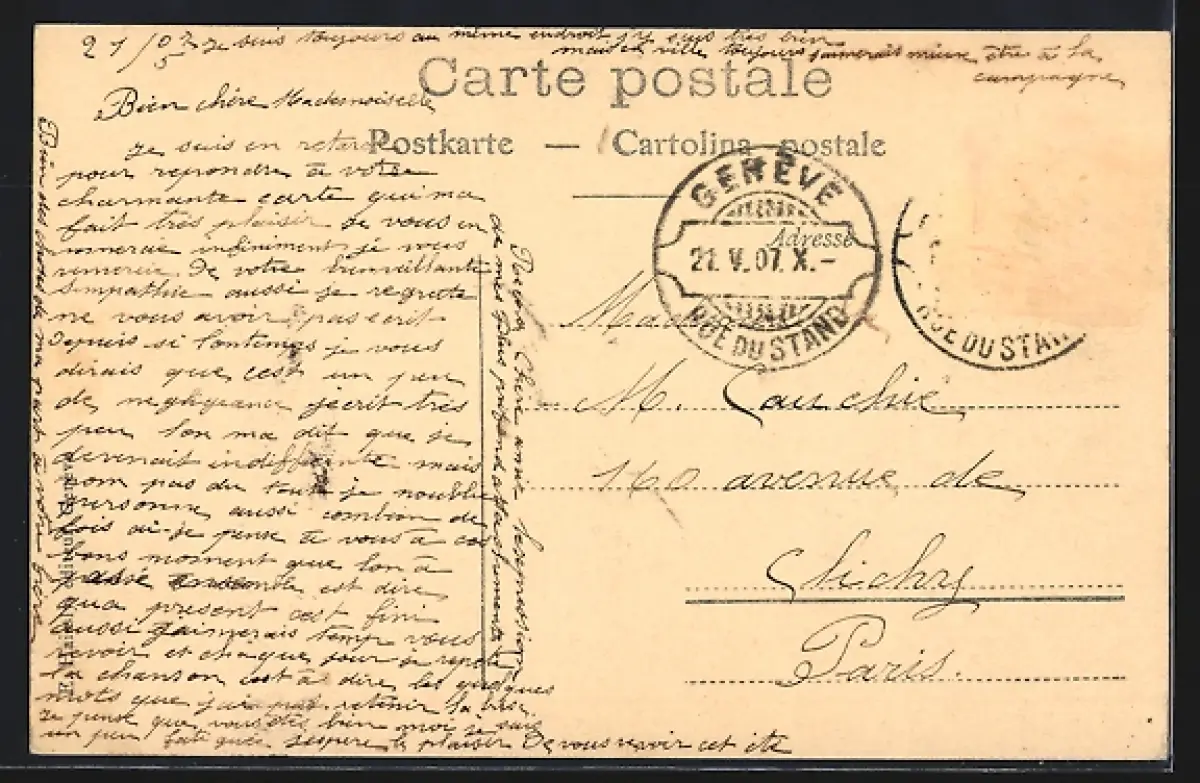 21/5 07 je suis toujours au même endroit j'y suis très bien
mais en ville toujours j'aimerais mieux être à la
campagne
Carte postale
Postkarte — Cartolina postale
Bien chère Mademoiselle
je suis en retard
pour repondre à votre
charmante carte qui ma
fait très plaisir je vous en
remercie infiniment je vous
remercie de votre bienveillante
simpathie aussi je regrette
ne vous avoir pas ecrit
depuis si lontemps je vous
dirais que cest un peu
de neghgeance jecrit très
peu lon ma dit que je
devenait indifferente mais
nom pas du tout je noublie
personne aussi combien de
fois ai-je pense à vous à ces
bons moment que lon à
passé ensemble et dire
qua present cest fini
aussi jaimerais temp vous
revoir et chaque jour je repete
la chanson cest à dire les quelques
mots que j'ai pas retenir
je pense que vous êtes bien moi je suis
un peu fatiguée jespere le plaisir de vous revoir cet ete
Recevez Chère amie lespression
de mes plus profond attachements
Bien des choses de ma part à votre frère
Editeur, Genève
GENÈVE
21. V. 07. X. –
RUE DU STAND
RUE DU STAN
Adresse
M. Cauchie
160 avenue de
Clichy
Paris.